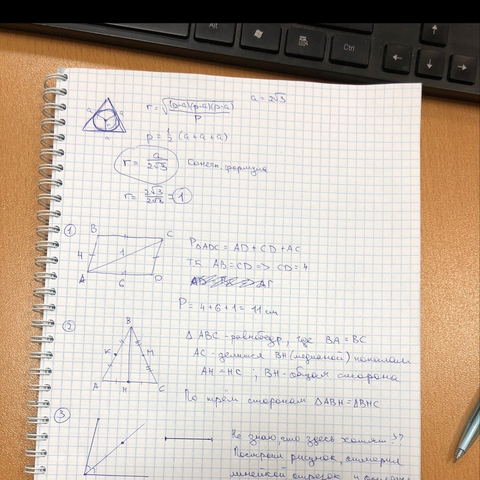 Alt
Ctrl
a = 2√3
r = √((p-a)(p-a)(p-a)/p)
a a a
p = ½ (a+a+a)
r = a/2√3 конечн. формула
r = 2√3/2√3 = 1
1
B C
4 1
A 6 D
P△ADC = AD + CD + AC
т.к. AB = CD => CD = 4
P = 4+6+1 = 11 см
2
B
K M
A H C
△ ABC - равнобедр, где BA = BC
AC - делится BH (медианой) пополам
AH = HC ; BH - общая сторона
По трём сторонам △ABH = △BHC
3
Не знаю, что здесь хотят!?
Построил рисунок,
линейкой отрезок и